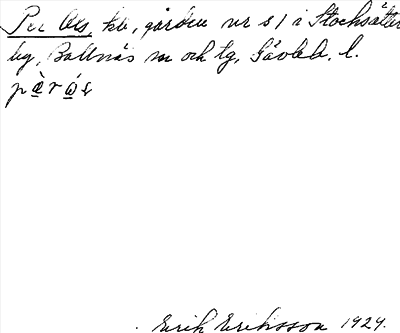 Per Ols, kb, gården nr 51 i Stocksätter
by, Bollnäs sn och tg, Gävleb. l.
pæ̀rós
Erik Eriksson 1929.